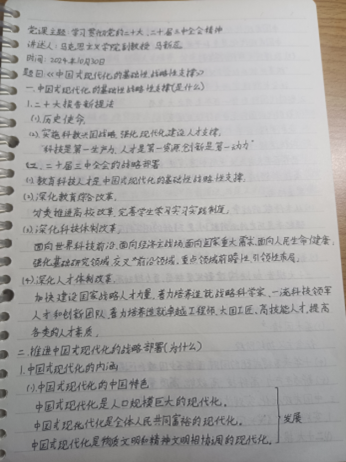 党课主题：学习贯彻党的二十大、二十届三中全会精神
讲述人：马克思主义学院副教授 马
时间：2024年10月30日
题目：《中国式现代化的基础性战略性支撑》
一.中国式现代化的基础性战略性支撑(是什么)
1.二十大报告新提法
(1).历史使命.
(2).实施科教兴国战略,强化现代化建设人才支撑.
"科技是第一生产力、人才是第一资源、创新是第一动力"
(二).二十届三中全会的战略部署
(1).教育科技人才是中国式现代化的基础性战略性支撑.
(2)深化教育综合改革.
分类推进高校改革,完善学生学习实习实践制度.
(3)深化科技体制改革.
面向世界科技前沿,面向经济主战场,面向国家重大需求,面向人民生命健康,
强化基础研究领域,交叉前沿领域,重点领域前瞻性,引领性布局.
(4)深化人才体制改革.
加快建设国家战略人才力量,着力培养造就战略科学家、一流科技领军
人才和创新团队,着力培养造就卓越工程师、大国工匠、高技能人才,提高
各类的人才素质.
二.推进中国式现代化的战略部署(为什么)
1.中国式现代化的内涵
(1).中国式现代化的中国特色
中国式现代化是人口规模巨大的现代化.
中国式现代化是全体人民共同富裕的现代化.
发展
中国式现代化是物质文明和精神文明相协调的现代化.